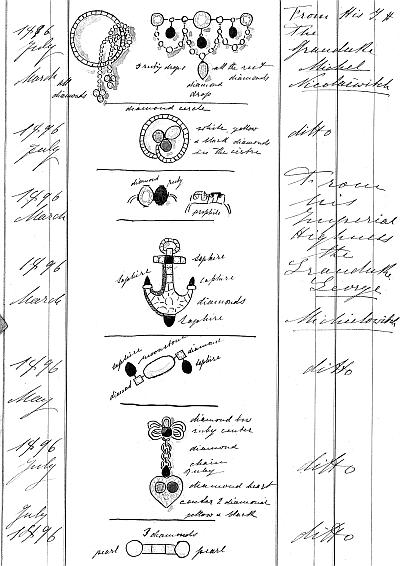 1896
July
March
all
diamonds
3 ruby drops
all the rest
diamonds
diamond
drop
From His I H
The
Granduke
Michel
Nicolaiwitch
diamond circle
1896
July
white yellow
& black diamonds
in the centre
ditto
1896
March
diamond
ruby
prophile
From
his
Imperial
Highness
the
Granduke
George
Michielowitch
1896
March
saphire
saphire
saphire
diamonds
Saphire
1896
May
saphire
moonstone
diamond
diamond
saphire
ditto
1896
July
diamond bow
ruby center
diamond
chain
ruby
diamond heart
center 2 diamond
yellow & black
ditto
July
1896
3 diamonds
pearl
pearl
ditto